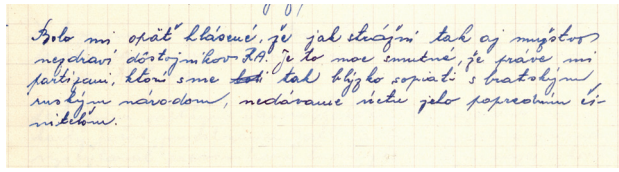 Bolo mi opäť hlásené, že jak strážni tak aj mužstvo
nezdraví dôstojníkov R.A. Je to moc smutné, že práve mi
partizani, ktorí sme tak blýzko sopiati s bratským
ruským národom, nedávame úctu jeho popredním či-
nitelom.